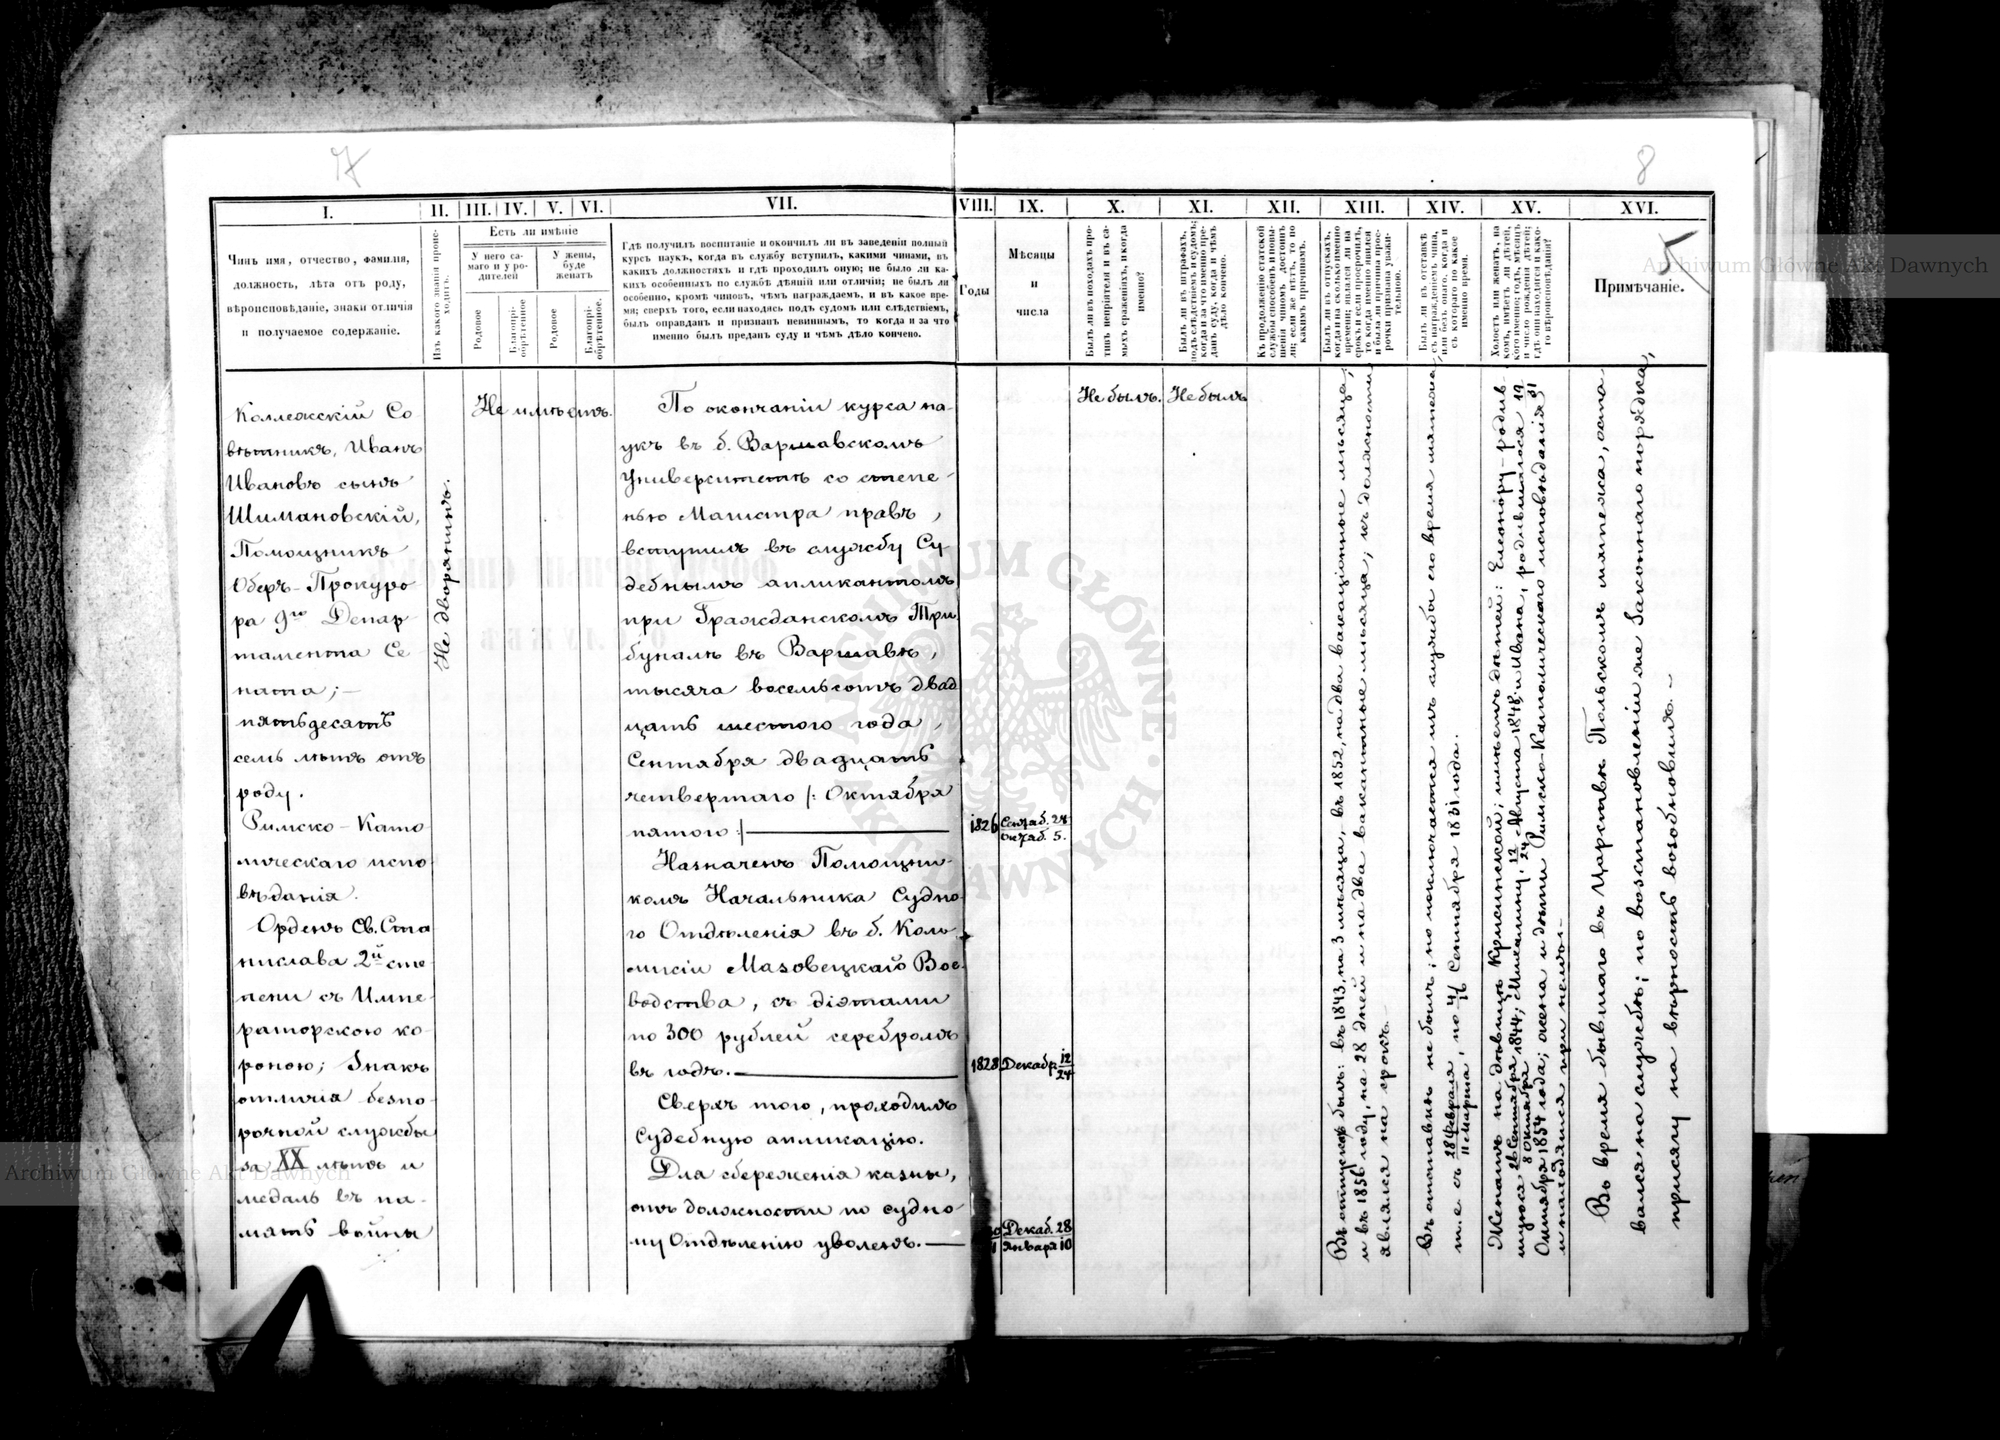 7
8
5
I.
II.
III.
IV.
V.
VI.
VII.
VIII.
IX.
X.
XI.
XII.
XIII.
XIV.
XV.
XVI.
Чинъ имя, отчество, фамилія,
должность, лѣта отъ роду,
вѣроисповѣданіе, знаки отличія
и получаемое содержаніе.
Изъ какого званія проис-
ходитъ.
Есть ли имѣніе
У него са-
маго и у ро-
дителей
У жены,
буде
женатъ
Родовое
Благопрі-
обрѣтенное
Родовое
Благопрі-
обрѣтенное.
Гдѣ получилъ воспитаніе и окончилъ ли въ заведеніи полный
курсъ наукъ, когда въ службу вступилъ, какими чинами, въ
какихъ должностяхъ и гдѣ проходилъ оную; не было ли ка-
кихъ особенныхъ по службѣ дѣяній или отличій; не былъ ли
особенно, кромѣ чиновъ, чѣмъ награждаемъ, и въ какое вре-
мя; сверхъ того, если находясь подъ судомъ или слѣдствіемъ,
былъ оправданъ и признанъ невиннымъ, то когда и за что
именно былъ преданъ суду и чѣмъ дѣло кончено.
Годы
Мѣсяцы
и
числа
Былъ ли въ походахъ про-
тивъ непріятеля и въ са-
мыхъ сраженіяхъ, и когда
именно?
Былъ ли въ штрафахъ,
подъ слѣдствіемъ и судомъ;
когда и за что именно пре-
данъ суду, когда и чѣмъ
дѣло кончено.
Къ продолженію статской
службы способенъ и повы-
шенія чиномъ достоинъ
ли; если же нѣтъ, то по
какимъ причинамъ.
Былъ ли въ отпускахъ,
когда и на сколько именно
времени; являлся ли на
срокъ и если просрочилъ,
то когда именно явился
и была ли причина прос-
рочки признана уважи-
тельною.
Былъ ли въ отставкѣ
съ награжденіемъ чина,
или безъ онаго, когда и
съ котораго по какое
именно время.
Холостъ или женатъ, на
комъ, имѣетъ ли дѣтей,
кого именно; годъ, мѣсяцъ
и число рожденія дѣтей;
гдѣ они находятся и како-
го вѣроисповѣданія?
Примѣчаніе.
Коллежскій Со-
вѣтникъ, Иванъ
Ивановъ сынъ
Шимановскій,
Помощникъ
Оберъ-Прокуро
ра 9го Депар
тамента Се-
ната; —
пятьдесятъ
семь лѣтъ отъ
роду.
Римско-Като
лическаго испо-
вѣданія.
Орденъ Св. Ста
нислава 2й сте-
пени съ Импе-
раторскою ко-
роною; Знакъ
отличія безпо-
рочной службы
за XX лѣтъ и
медаль въ па-
мять войны
Не дворянинъ.
Не имѣетъ.
По окончаніи курса на-
укъ въ б. Варшавскомъ
Университетѣ со степе-
нью Магистра правъ,
вступилъ въ службу Су-
дебнымъ апликантомъ
при Гражданскомъ Три
буналѣ въ Варшавѣ,
тысяча восемьсотъ двад
цать шестого года,
Сентября двадцать
четвертаго /: Октября
пятого :/
1826 Сентяб. 24
Октяб. 5.
Назначенъ Помощни-
комъ Начальника Судно-
го Отдѣленія въ б. Ком-
мисіи Мазовецкаго Вое-
водства, съ діэтами
по 300 рублей серебромъ
въ годъ.
1828 Декабр. 12/24
Сверхъ того, проходилъ
Судебную апликацію.
Для сбереженія казны,
отъ должности по судно-
му Отдѣленію уволенъ. —
Декаб. 28
Января 10
Не былъ.
Не былъ
Въ отпускахъ былъ: въ 1843, на 3 мѣсяца, въ 1852, на два вакаціонные мѣсяца,
и въ 1856 году, на 28 дней и на два вакантные мѣсяца; къ должности
являлся на срокъ. —
Въ отставкѣ не былъ; но исключается изъ службы его время мятежа
т. е. съ 28 Февраля/11 Марта, по 4/16 Сентября 1831 года.
Женатъ на дѣвицѣ Крысинской; имѣетъ дѣтей: Елеонору — родив-
шуюся 26 Сентября/8 Октября 1844; Михалину, 12/24 Августа 1848 и Ивана, родившагося 19/31
Октября 1854 года; жена и дѣти Римско-Католическаго исповѣданія
и находятся при немъ. —
Въ время бывшаго въ Царствѣ Польскомъ мятежа, оста
вался на службѣ; по возстановленіи же Законнаго порядка,
присягу на вѣрность возобновилъ. —
Archiwum Główne Akt Dawnych
Archiwum Główne Akt Dawnych
ARCHIWUM GŁÓWNE AKT DAWNYCH